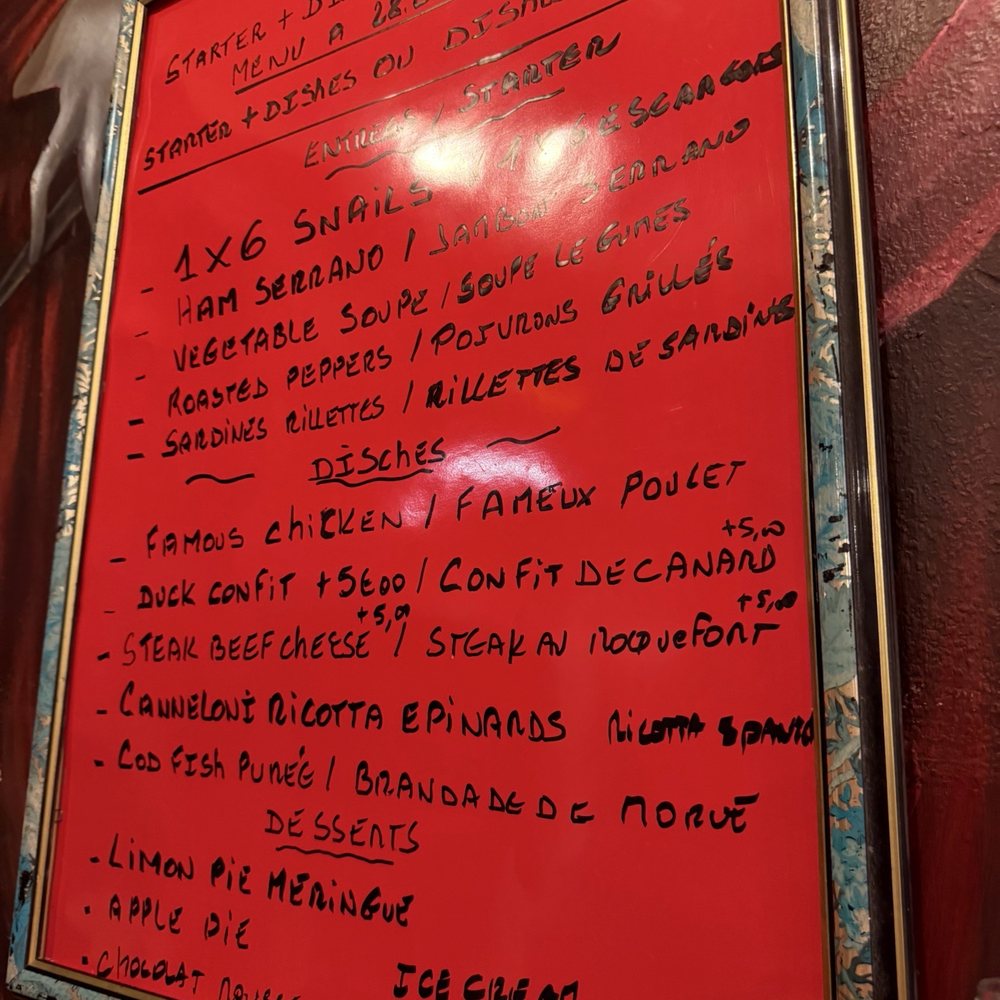 STARTER + DI
MENU A 28.
STARTER + DISHES OU
ENTREES / STARTER
- 1X6 SNAILS / 1X6 ESCARGOTS
- HAM SERRANO / JAMBON SERRANO
- VEGETABLE SOUPE / SOUPE LEGUMES
- ROASTED PEPPERS / POIVRONS GRILLÉS
- SARDINES RILLETTES / RILLETTES DE SARDINES
DISCHES
- FAMOUS CHICKEN / FAMEUX POULET
- DUCK CONFIT +5€00 / CONFIT DE CANARD +5,00
- STEAK BEEF CHEESE +5,00 / STEAK AU ROQUEFORT +5,00
- CANNELONI RICOTTA EPINARDS RICOTTA
- COD FISH PURÉE / BRANDADE DE MORUE
DESSERTS
- LIMON PIE MERINGUE
- APPLE PIE
- CHOCOLAT ICE CREAM